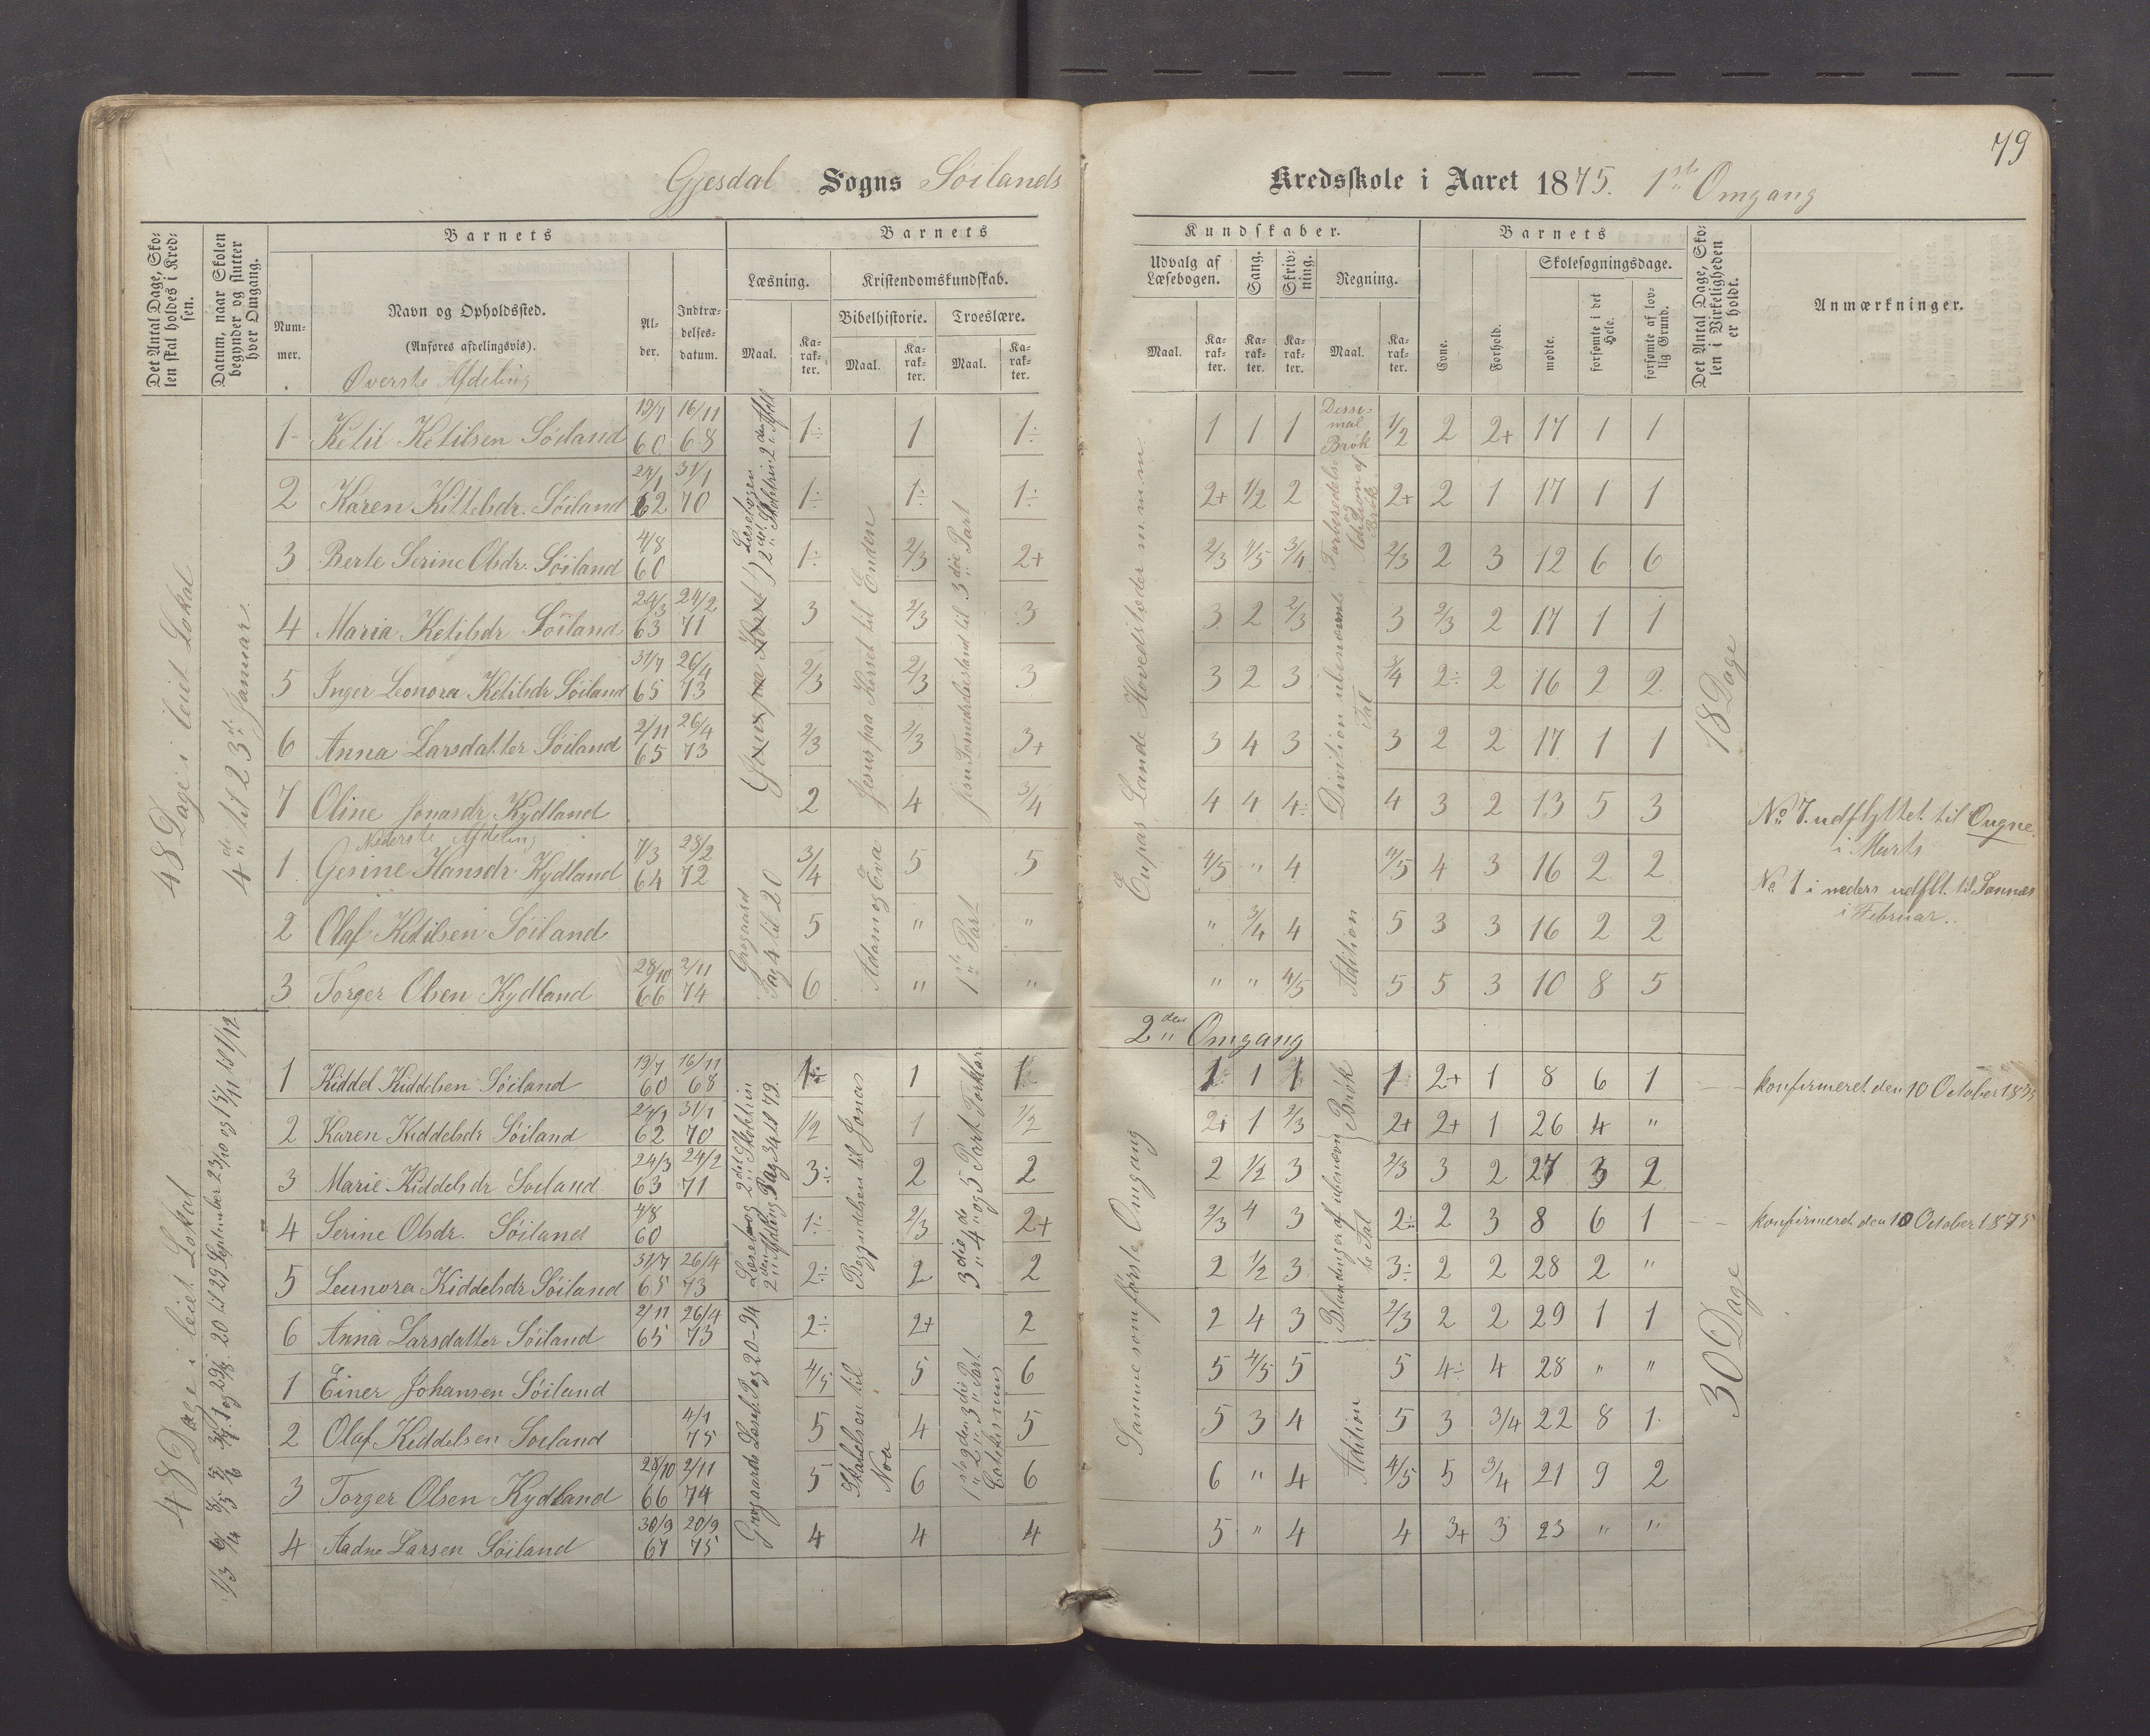 79
Gjesdal Sogns Søilands Kredsskole i Aaret 1875. 1ste Omgang
Det Antal Dage, Skolen skal holdes i Kredsen.
Datum, naar Skolen begynder og slutter hver Omgang.
Barnets
Nummer.
Navn og Opholdssted.
(Anføres afdelingsvis).
Øverste Afdeling
Alder.
Indtrædelsesdatum.
Barnets Kundskaber.
Læsning.
Maal.
Karakter.
Kristendomskundskab.
Bibelhistorie.
Maal.
Karakter.
Troeslære.
Maal.
Karakter.
Udvalg af Læsebogen.
Maal.
Karakter.
Sang.
Karakter.
Skrivning.
Karakter.
Regning.
Maal.
Karakter.
Barnets
Evne.
Forhold.
Skolesøgningsdage.
mødte.
forsømte i det Hele.
forsømte af lovlig Grund.
Det Antal Dage, Skolen i Virkeligheden er holdt.
Anmærkninger.
48 Dage i leiet Lokal
4de til 23de Januar.
1 Ketil Ketilsen Søiland 19/7 60 16/11 68 1÷ 1 1÷ 1 1 1 1/2 2 2+ 17 1 1
2 Karen Kittelsdr. Søiland 24/1 62 31/1 70 1÷ 1÷ 1÷ 2+ 1/2 2 2+ 2 1 17 1 1
3 Berte Serine Olsdr. Søiland 4/8 60 1÷ 2/3 2+ 2/3 4/5 3/4 2/3 2 3 12 6 6
4 Maria Ketilsdr Søiland 24/3 63 24/2 71 3 2/3 3 3 2 2/3 3 2/3 2 17 1 1
5 Inger Leonora Ketilsdr Søiland 31/7 65 26/4 73 2/3 2/3 3 3 2 3 3/4 2÷ 2 16 2 2
6 Anna Larsdatter Søiland 2/11 65 26/4 73 2/3 2/3 3+ 3 4 3 3 2 2 17 1 1
7 Oline Jonasdr Kydland 2 4 3/4 4 4 4÷ 4 3 2 13 5 3
Nederste Afdeling
1 Gesine Hansdr Kydland 7/3 64 28/2 72 3/4 5 5 4/5 " 4 4/5 4 3 16 2 2
2 Olaf Ketilsen Søiland 5 " " " 3/4 4 5 3 3 16 2 2
3 Torger Olsen Kydland 28/10 66 2/11 74 6 " " " " 4/5 5 5 3 10 8 5
Læsebogen 2det Skoletrin 2den Afdl
Jesus paa Korset
Jesus paa Korset til Enden
til 3die Part
Grøgaard Pag 4 til 20
Adam og Eva
1ste Part
Dessimal Brøk
Forberedelse og Addition af Brøk
Division ubenævnte Tal
Adition
18 Dage
No 7. udflyttet til Ougne. i Marts
No 1 i neders udflt. til Sannæs i Februar.
2den Omgang
48 Dage i leiet Lokal
1 Kiddel Kiddelsen Søiland 19/7 60 16/11 68 1÷ 1 1 1 1 1 1 2+ 1 8 6 1 konfirmeret den 10 October 1875
2 Karen Kiddelsdr Søiland 24/1 62 31/1 70 1/2 1 1/2 2+ 1 2/3 2+ 2+ 1 26 4 "
3 Marie Kiddelsdr Søiland 24/3 63 24/2 71 3÷ 2 2 2 1/2 3 2/3 3 2 27 3 2
4 Serine Olsdr. Søiland 4/8 60 1÷ 2/3 2+ 2/3 4 3 2÷ 2 3 8 6 1 konfirmeret den 10 October 1875
5 Leunora Kiddelsdr Søiland 31/7 65 26/4 73 2÷ 2 2 2 1/2 3 3÷ 2 2 28 2 "
6 Anna Larsdatter Søiland 2/11 65 26/4 73 2÷ 2+ 2 2 4 3 2/3 2 2 29 1 1
1 Einer Johansen Søiland 4/5 5 6 5 4/5 5 5 4÷ 4 28 " "
2 Olaf Kiddelsen Søiland 4/1 75 5 4 5 5 3 4 5 3 3/4 22 8 1
3 Torger Olsen Kydland 28/10 66 2/11 74 5 6 6 6 " 4 4/5 5 3/4 21 9 2
4 Aadne Larsen Søiland 30/9 67 20/9 75 4 4 4 5 " 4 4 3+ 3 23 " "
Læsebog 2det Skoletrin 2den Afdeling Pag 34 til 79.
Begyndelsen til Jonas
3die 4de og 5 Part Forklar
Grøgaards Læseb. Pag 20-94
Skabelsen til Noa
1ste 2den 3die Part Catekismus
Samme som første Omgang
Brøk
Blandinger af ubenævnte Tal
Adition
30 Dage